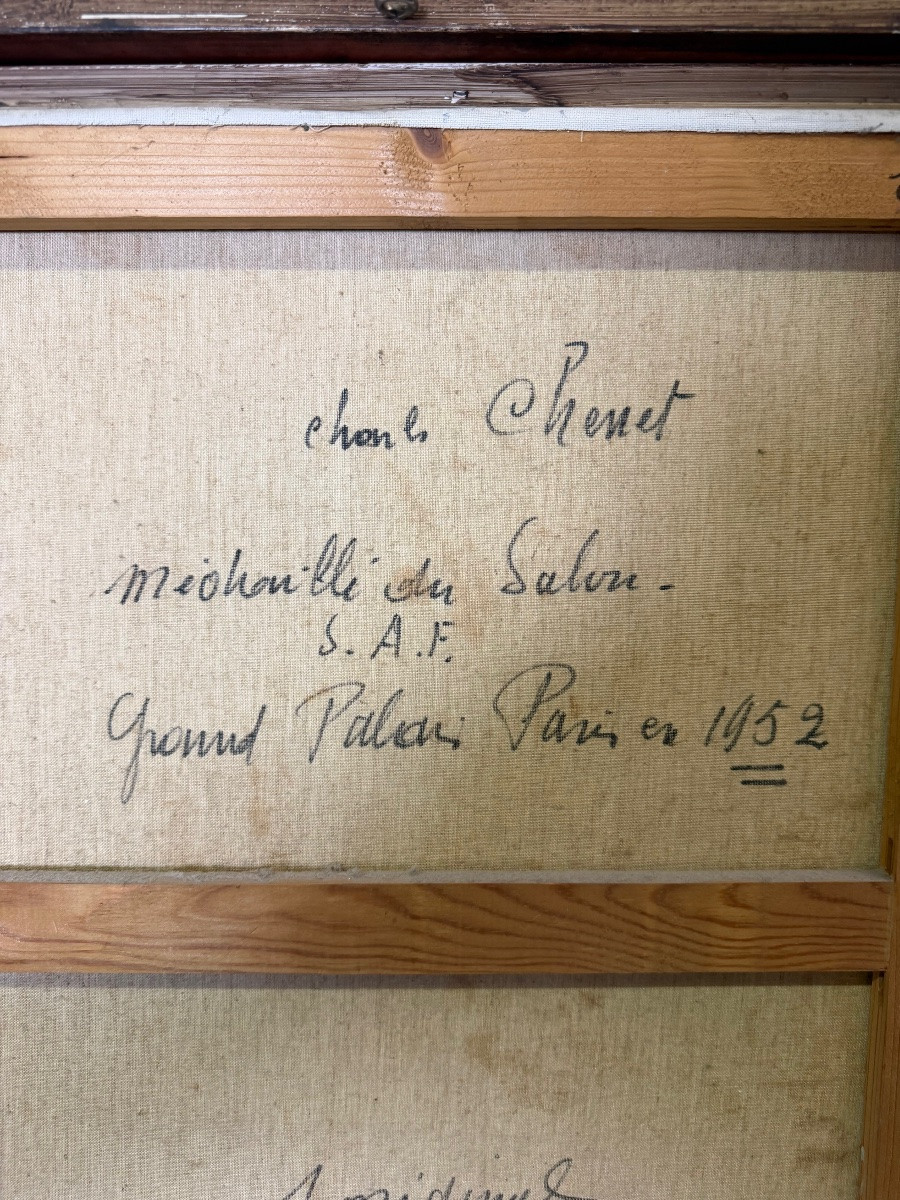 Charles Chenet
Médaillé du Salon -
S. A. F.
Grand Palais Paris en 1952